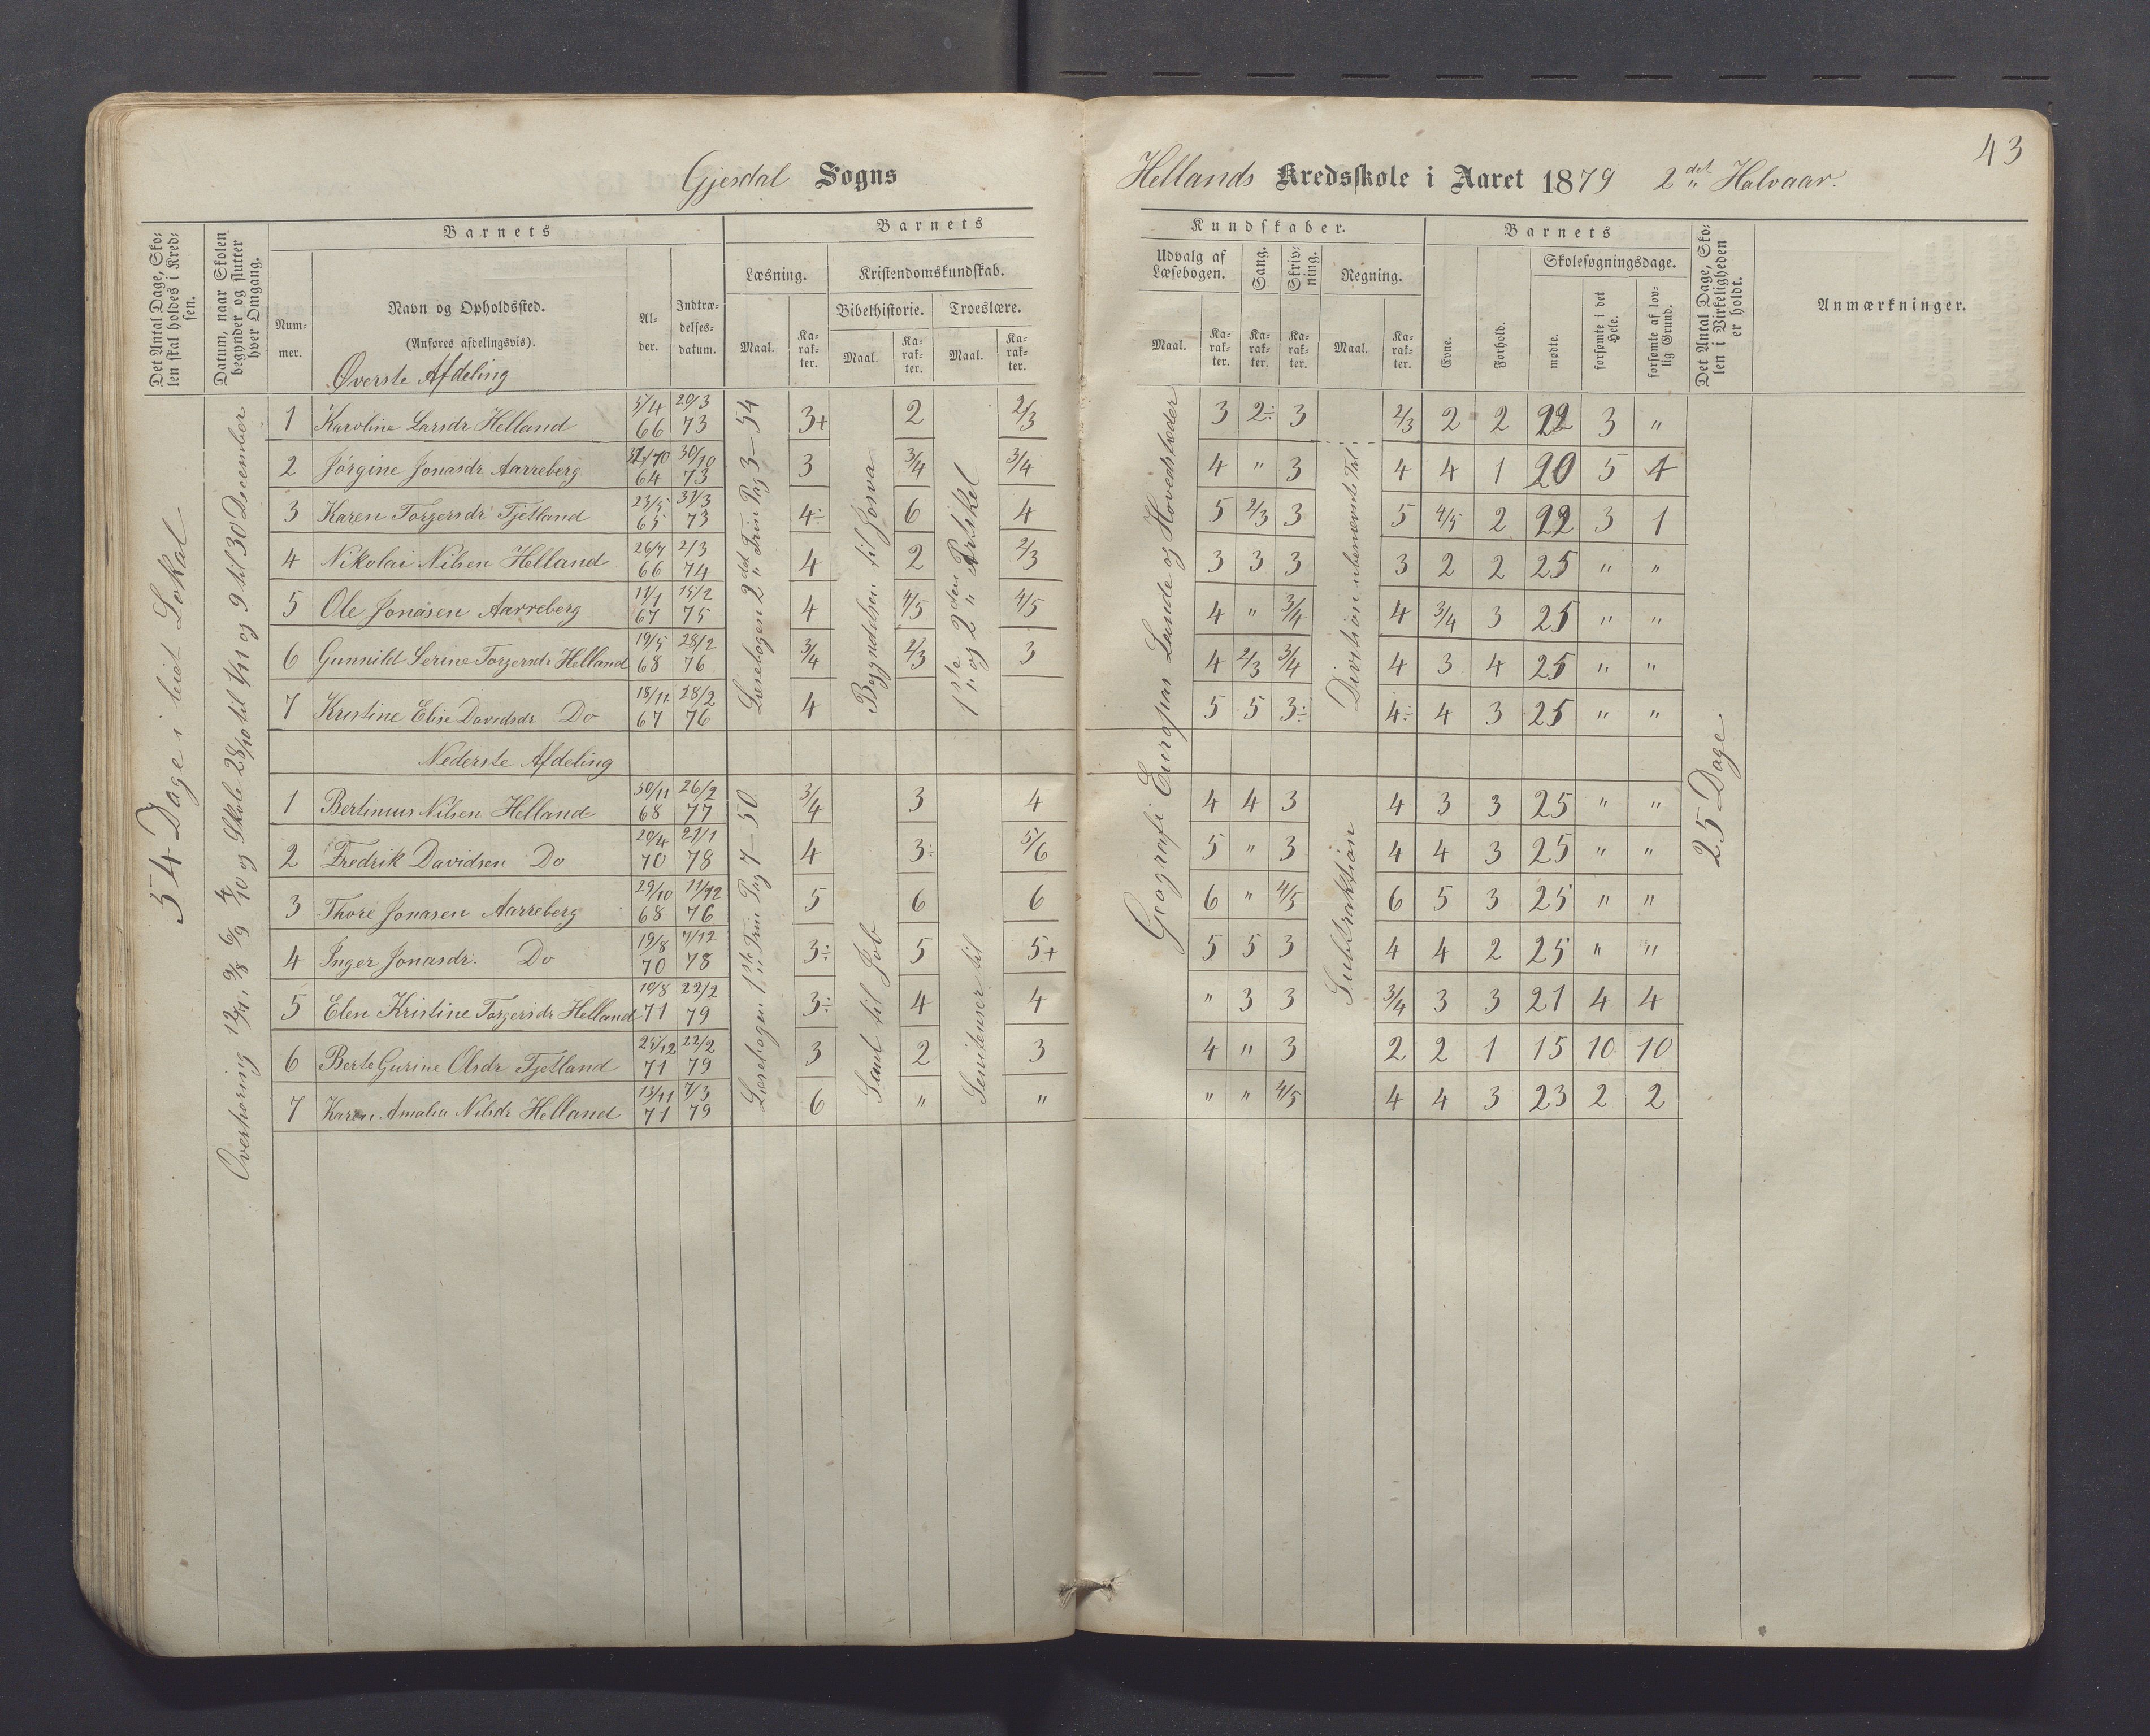 43
Gjesdal Sogns Hellands Kredsskole i Aaret 1879 2det Halvaar.
Det Antal Dage, Skolen skal holdes i Kredsen.
Datum, naar Skolen begynder og slutter hver Omgang.
Barnets
Nummer.
Navn og Opholdssted.
(Anføres afdelingsvis).
Alder.
Indtrædelsesdatum.
Barnets Kundskaber.
Læsning.
Maal.
Karakter.
Kristendomskundskab.
Bibelhistorie.
Maal.
Karakter.
Troeslære.
Maal.
Karakter.
Udvalg af Læsebogen.
Maal.
Karakter.
Sang.
Karakter.
Skrivning.
Karakter.
Regning.
Maal.
Karakter.
Barnets
Evne.
Forhold.
Skolesøgningsdage.
mødte.
forsømte i det Hele.
forsømte af lovlig Grund.
Det Antal Dage, Skolen i Virkeligheden er holdt.
Anmærkninger.
54 Dage i leiet Lokal
Overhøring 12/7, 9/8 6/9 4/10 og Skole 28/10 til 1/11 og 9 til 30 December
Øverste Afdeling
Læsebogen 2det Trin Pag 3-54
Begyndelsen til Josva
1ste og 2den Artikel
Geografi Europas Lande og Hovedstæder
Division ubenævnte Tal
1 Karoline Larsdr Helland 5/4 66 20/3 73 3+ 2 2/3 3 2÷ 3 2/3 2 2 22 3 "
2 Jørgine Jonasdr Aarreberg 64 30/10 73 3 3/4 3/4 4 " 3 4 4 1 20 5 4
3 Karen Torgersdr Tjetland 23/5 65 31/3 73 4÷ 6 4 5 2/3 3 5 4/5 2 22 3 1
4 Nikolai Nilsen Helland 26/7 66 2/3 74 4 2 2/3 3 3 3 3 2 2 25 " "
5 Ole Jonasen Aarreberg 11/1 67 15/2 75 4 4/5 4/5 4 " 3/4 4 3/4 3 25 " "
6 Gunnild Serine Torgersdr Helland 19/5 68 28/2 76 3/4 2/3 3 4 2/3 3/4 4 3 4 25 " "
7 Kristine Elise Davidsdr Do 18/11 67 28/2 76 4 5 5 3÷ 4÷ 4 3 25 " "
Nederste Afdeling
Læsebogen 1ste Trin Pag 7-50
Saul til Job
Sentenser til
Subtraktion
25 Dage
1 Bertinius Nilsen Helland 30/11 68 26/2 77 3/4 3 4 4 4 3 4 3 3 25 " "
2 Fredrik Davidsen Do 20/4 70 21/1 78 4 3÷ 5/6 5 " 3 4 4 3 25 " "
3 Thore Jonasen Aarreberg 29/10 68 11/12 76 5 6 6 6 " 4/5 6 5 3 25 " "
4 Inger Jonasdr. Do 19/8 70 7/12 78 3÷ 5 5+ 5 5 3 4 4 2 25 " "
5 Elen Kristine Torgersdr Helland 10/8 71 22/2 79 3÷ 4 4 " 3 3 3/4 3 3 21 4 4
6 Berte Gurine Olsdr Tjetland 25/12 71 22/2 79 3 2 3 4 " 3 2 2 1 15 10 10
7 Karen Amalia Nilsdr Helland 13/11 71 7/3 79 6 " " " " 4/5 4 4 3 23 2 2